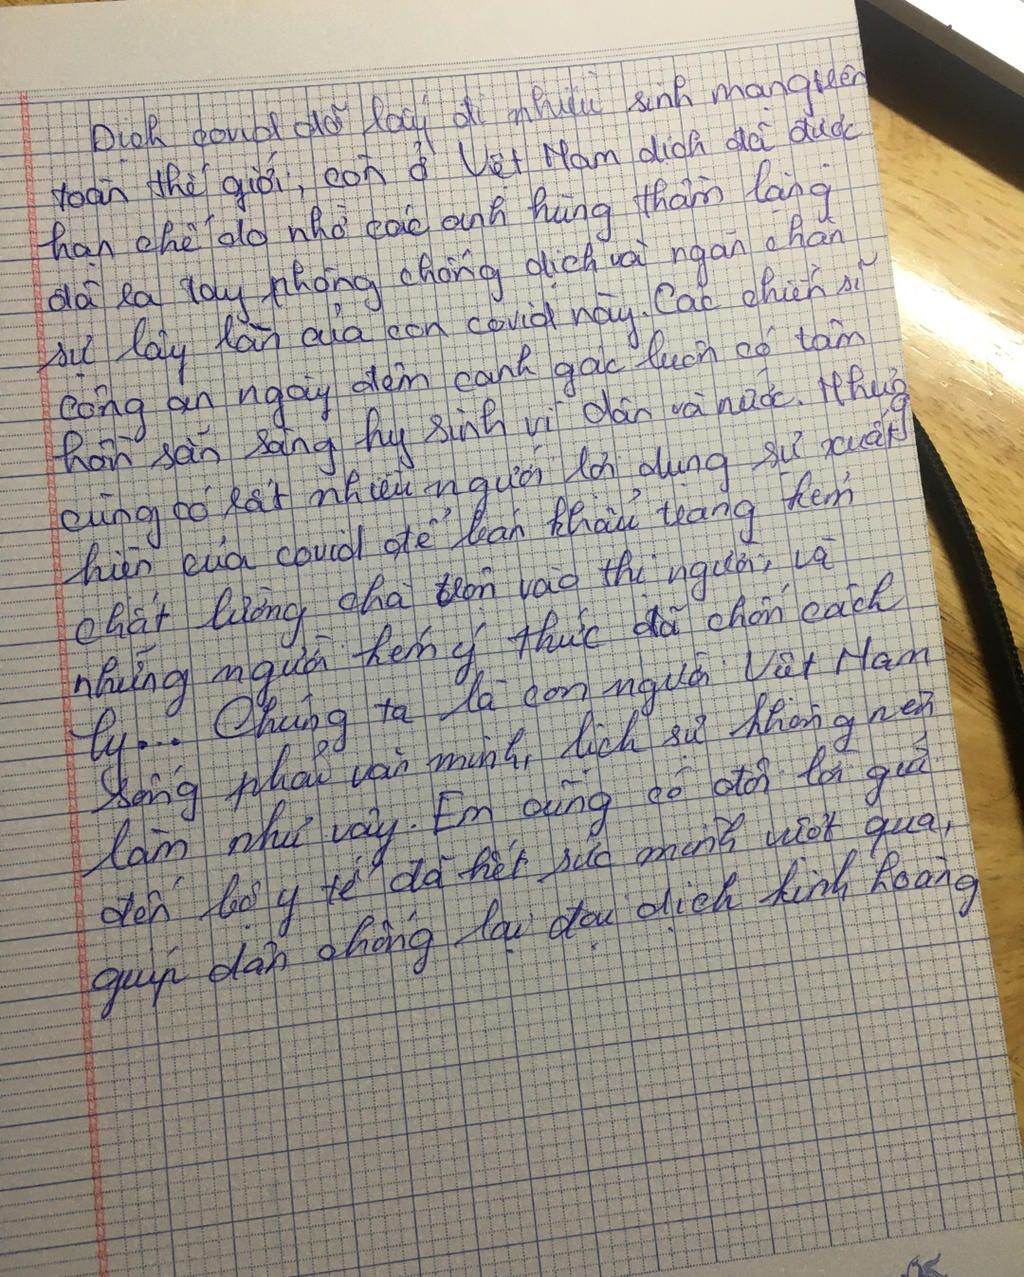 Dịch covid đã lấy đi nhiều sinh mạng trên
toàn thế giới, còn ở Việt Nam dịch đã được
hạn chế do nhờ các anh hùng thầm lặng
đã ra tay phòng chống dịch và ngăn chặn
sự lây lan của con covid này. Các chiến sĩ
công an ngày đêm canh gác luôn có tâm
hồn sẵn sàng hy sinh vì dân và nước. Nhưng
cũng có rất nhiều người lợi dụng sự xuất
hiện của covid để bán khẩu trang kém
chất lượng chà trộn vào thị người, và
những người kém ý thức đã chốn cách
ly... Chúng ta là con người Việt Nam
sống phải văn minh, lịch sự không nên
làm như vậy. Em cũng có đôi lời gửi
đến bộ y tế đã hết sức mình vượt qua,
giúp dân chống lại đại dịch kinh hoàng